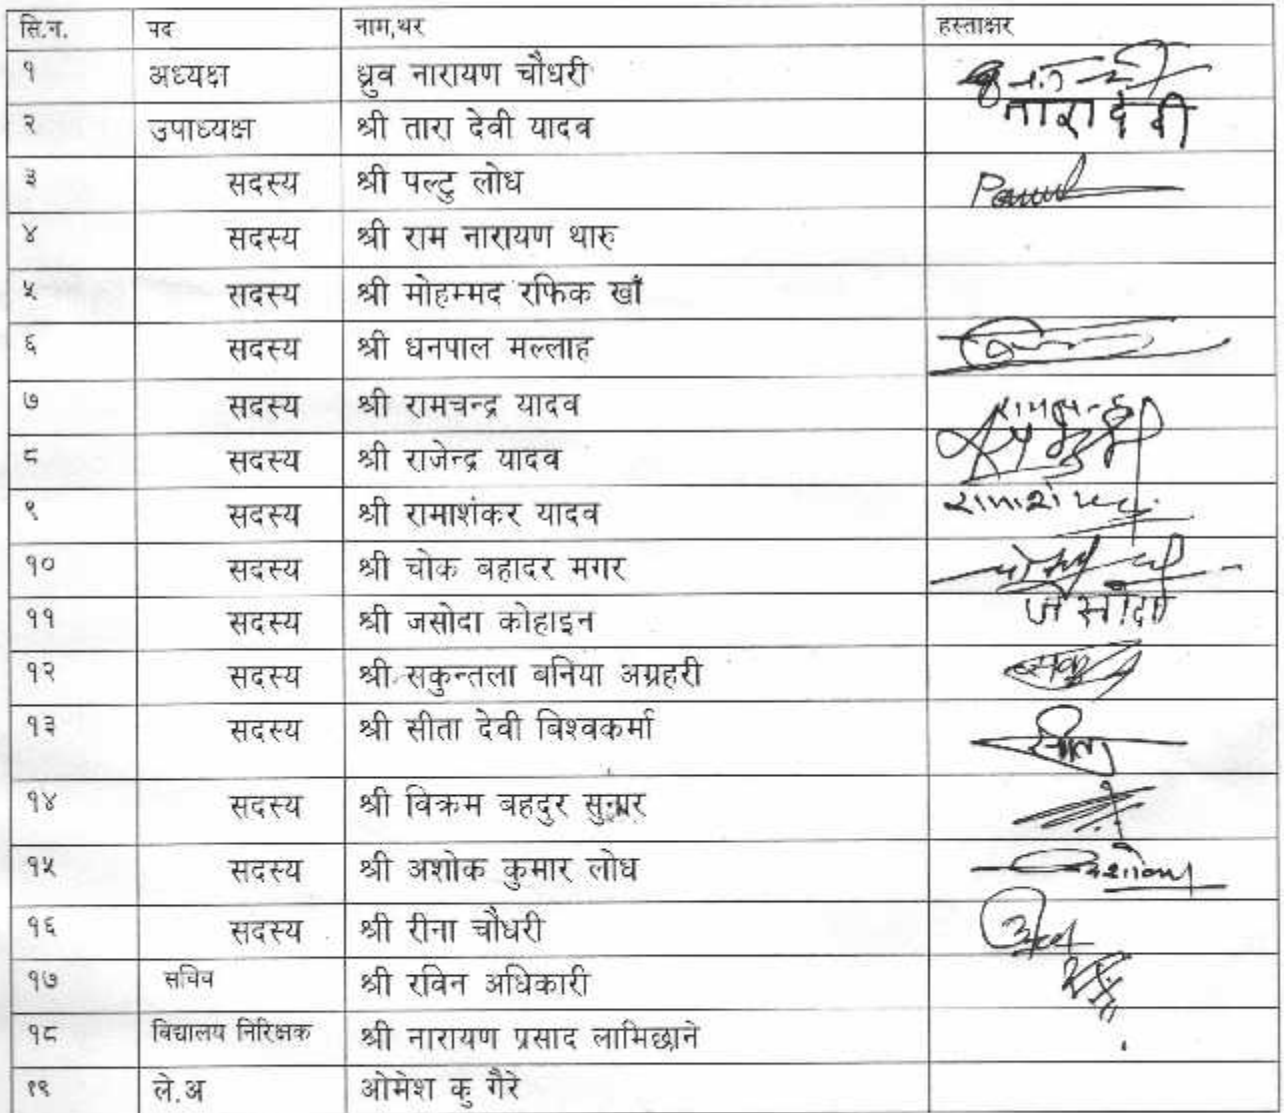 सि.न. पद नाम,थर हस्ताक्षर
१ अध्यक्ष ध्रुव नारायण चौधरी
२ उपाध्यक्ष श्री तारा देवी यादव तारा देवी
३ सदस्य श्री पल्टु लोध
४ सदस्य श्री राम नारायण थारु
५ सदस्य श्री मोहम्मद रफिक खाँ
६ सदस्य श्री धनपाल मल्लाह
७ सदस्य श्री रामचन्द्र यादव
८ सदस्य श्री राजेन्द्र यादव
९ सदस्य श्री रामाशंकर यादव
१० सदस्य श्री चोक बहादर मगर
११ सदस्य श्री जसोदा कोहाइन जसोदा
१२ सदस्य श्री सकुन्तला बनिया अग्रहरी
१३ सदस्य श्री सीता देवी बिश्वकर्मा सीता
१४ सदस्य श्री विक्रम बहदुर सुनार
१५ सदस्य श्री अशोक कुमार लोध
१६ सदस्य श्री रीना चौधरी
१७ सचिव श्री रविन अधिकारी
१८ विद्यालय निरिक्षक श्री नारायण प्रसाद लामिछाने
१९ ले.अ ओमेश कु गैरे